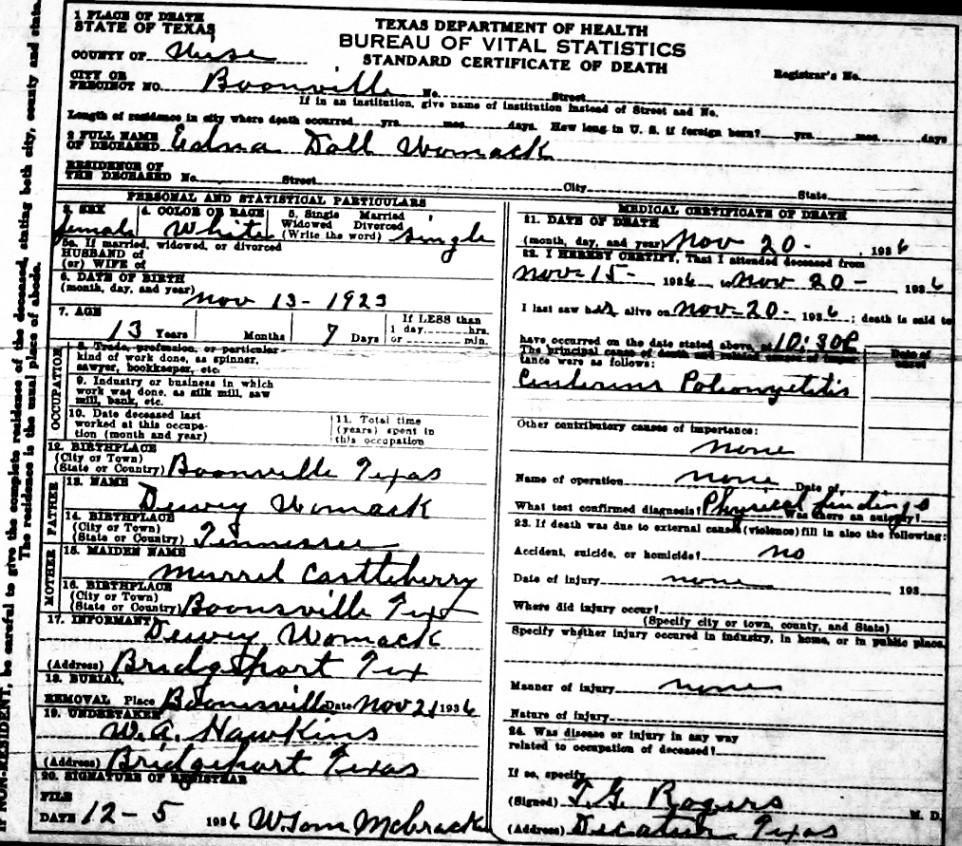 1 PLACE OF DEATH
STATE OF TEXAS
TEXAS DEPARTMENT OF HEALTH
BUREAU OF VITAL STATISTICS
STANDARD CERTIFICATE OF DEATH
COUNTY OF Wise
Registrar's No.
CITY OR
PRECINCT NO. Boonville No. Street
If in an institution, give name of institution instead of Street and No.
Length of residence in city where death occurred yrs. mos. days. How long in U. S. if foreign born? yrs. mos. days
2 FULL NAME
OF DECEASED Edna Doll Womack
RESIDENCE OF
THE DECEASED No. Street City State
PERSONAL AND STATISTICAL PARTICULARS
3. SEX female
4. COLOR OR RACE White
5. Single Married
Widowed Divorced
(Write the word) single
5a. If married, widowed, or divorced
HUSBAND of
(or) WIFE of
6. DATE OF BIRTH
(month, day, and year) Nov 13 - 1923
7. AGE
13 Years Months 7 Days
If LESS than
1 day hrs.
or min.
OCCUPATION
8. Trade, profession, or particular
kind of work done, as spinner,
sawyer, bookkeeper, etc.
9. Industry or business in which
work was done, as silk mill, saw
mill, bank, etc.
10. Date deceased last
worked at this occupa-
tion (month and year)
11. Total time
(years) spent in
this occupation
12. BIRTHPLACE
(City or Town)
(State or Country) Boonville Texas
FATHER
13. NAME
Dewey Womack
14. BIRTHPLACE
(City or Town)
(State or Country) Tennessee
MOTHER
15. MAIDEN NAME
Murrel Castleberry
16. BIRTHPLACE
(City or Town)
(State or Country) Boonsville Tex
17. INFORMANT
Dewey Womack
(Address) Bridgeport Tex
18. BURIAL,
REMOVAL Place Boonsville Date Nov 21 1936
19. UNDERTAKER
W. A. Hawkins
(Address) Bridgeport Texas
20. SIGNATURE OF REGISTRAR
FILE
DATE 12 - 5 1936 W. Tom
MEDICAL CERTIFICATE OF DEATH
21. DATE OF DEATH
(month, day, and year) Nov 20 - , 1936
22. I HEREBY CERTIFY, That I attended deceased from
Nov - 15 - 1936 to Nov 20 - 1936
I last saw her alive on Nov - 20 - 1936; death is said to
have occurred on the date stated above, at 10:30P
The principal cause of death and related causes of impor-
tance were as follows:
Date of
onset
Other contributory causes of importance:
none
Name of operation none Date of
What test confirmed diagnosis? Physical findings Was there an autopsy?
23. If death was due to external causes (violence) fill in also the following:
Accident, suicide, or homicide? no
Date of injury none 193
Where did injury occur?
(Specify city or town, county, and State)
Specify whether injury occured in industry, in home, or in public place.
Manner of injury none
Nature of injury
24. Was disease or injury in any way
related to occupation of deceased?
If so, specify
(Signed) T. G. Rogers M. D.
(Address) Decatur Texas
IF NON-RESIDENT, be careful to give the complete residence of the deceased, stating both city, county and state.
The residence is the usual place of abode.